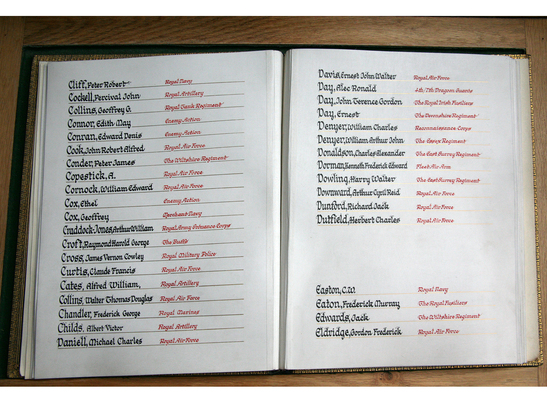 Cliff, Peter Robert Royal Navy
Cockell, Percival John Royal Artillery
Collins, Geoffrey G. Royal Tank Regiment
Connor, Edith May Enemy Action
Conran, Edward Denis Enemy Action
Cook, John Robert Alfred Royal Air Force
Conder, Peter James The Wiltshire Regiment
Copestick, A. Royal Air Force
Cornock, William Edward Royal Air Force
Cox, Ethel Enemy Action
Cox, Geoffrey Merchant Navy
Craddock-Jones, Arthur William Royal Army Ordnance Corps
Croft, Raymond Harold George The Buffs
Cross, James Vernon Cowley Royal Military Police
Curtis, Claude Francis Royal Air Force
Cates, Alfred William, Royal Artillery
Collins, Walter Thomas Douglas Royal Air Force
Chandler, Frederick George Royal Marines
Childs, Albert Victor Royal Artillery
Daniell, Michael Charles Royal Air Force
Davis, Ernest John Walter Royal Air Force
Day, Alec Ronald 4th/7th Dragoon Guards
Day, John Terence Gordon The Royal Irish Fusiliers
Day, Ernest The Devonshire Regiment
Denyer, William Charles Reconnaissance Corps
Denyer, William Arthur John The Essex Regiment
Donaldson, Charles Alexander The East Surrey Regiment
Dorman, Kenneth Frederick Edward Fleet Air Arm
Dowling, Harry Walter The East Surrey Regiment
Downward, Arthur Cyril Reid Royal Air Force
Dunford, Richard Jack Royal Air Force
Dutfield, Herbert Charles Royal Air Force
Easton, C.W. Royal Navy
Eaton, Frederick Murray The Royal Fusiliers
Edwards, Jack The Wiltshire Regiment
Eldridge, Gordon Frederick Royal Air Force